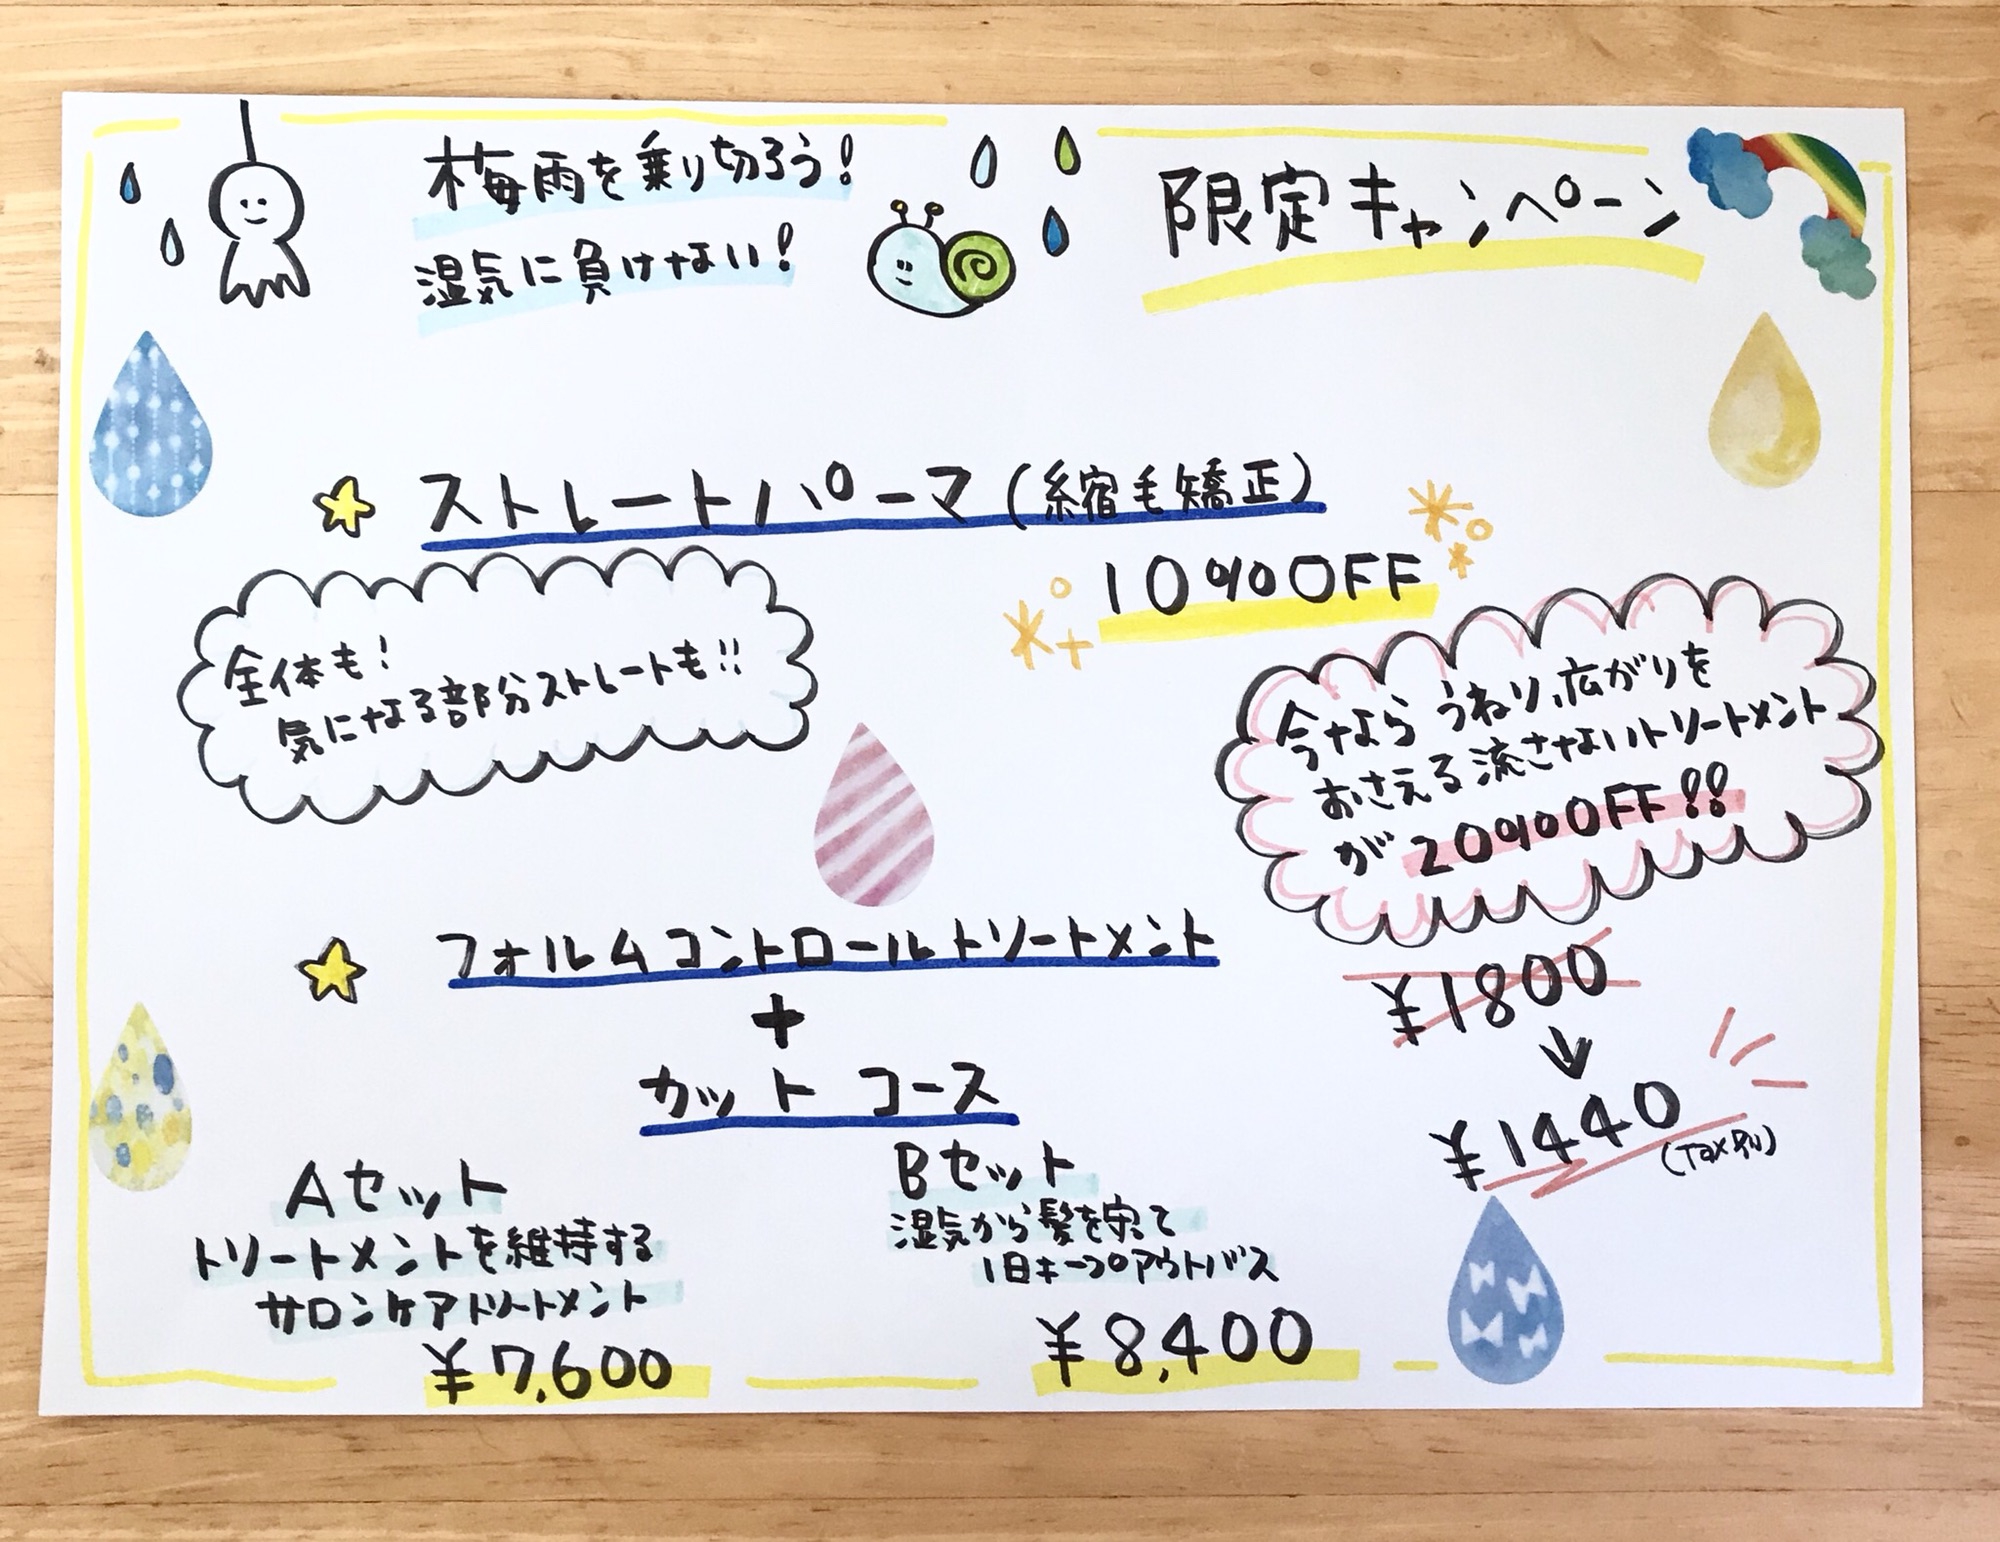 梅雨を乗り切ろう!
湿気に負けない!
限定キャンペーン
ストレートパーマ(縮毛矯正)
10%OFF
全体も!
気になる部分ストレートも!!
今なら うねり、広がりを
おさえる流さないトリートメント
が 20%OFF!!
¥1800
↓
¥1440
(Tax別)
フォルムコントロールトリートメント
+
カット コース
Aセット
トリートメントを維持する
サロンケアトリートメント
¥7,600
Bセット
湿気から髪を守って
1日キープアウトバス
¥8,400